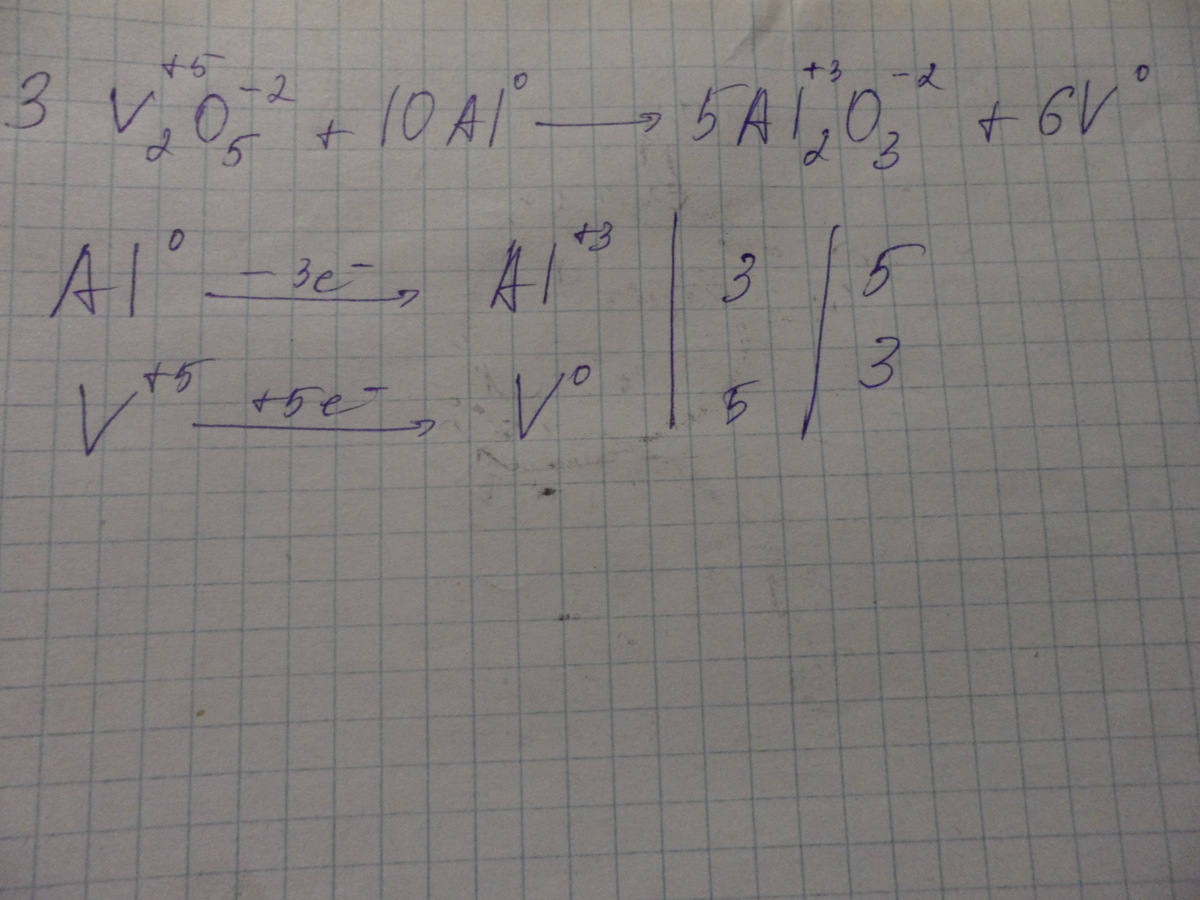 3 V₂⁺⁵O₅⁻² + 10Al⁰ → 5Al₂⁺³O₃⁻² + 6V⁰
Al⁰ −3e⁻→ Al⁺³ | 3 / 5
V⁺⁵ +5e⁻→ V⁰ | 5 / 3